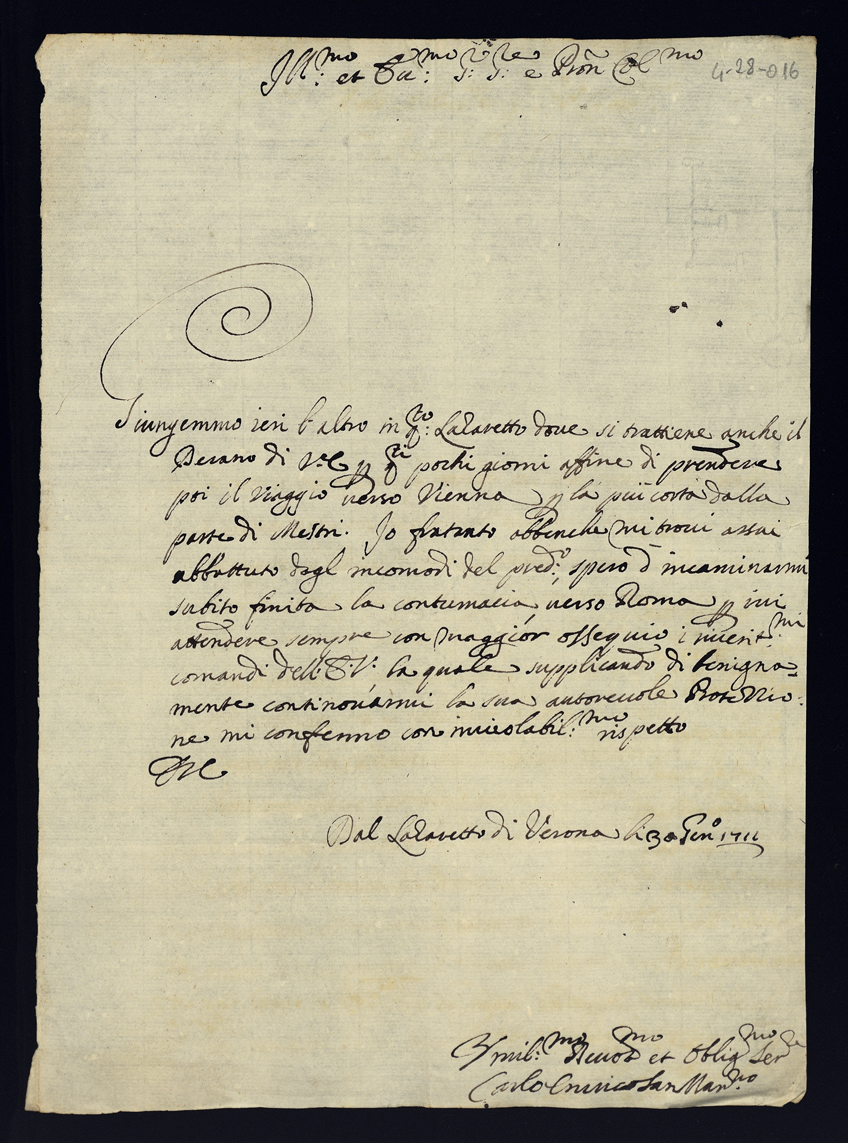 Ill:mo et Ecc:mo S:r S:re e Pron Col mo
4-28-016
Giungemmo ieri l'altro in q:to Lazaretto dove si trattiene anche il
Decano di V:E p q:ti pochi giorni affine di prendere
poi il viaggio verso Vienna p la più corta dalla
parte di Mestri. Io fratanto abbenche mi trovi assai
abbattuto dagl incomodi del pred:o, spero d'incaminarmi
subito finita la contumacia verso Roma p ivi
attendere sempre con maggior ossequio i riverit:mi
comandi dell:E:V: la quale supplicando di benigna=
mente continovarmi la sua autorevole Protezzio:
ne mi confermo con inviolabil:mo rispetto
DVE
Dal Lazaretto di Verona li 30 Gen:o 1711
Vmil:mo Devot mo et Oblig mo Ser re
Carlo Enrico San Mar no